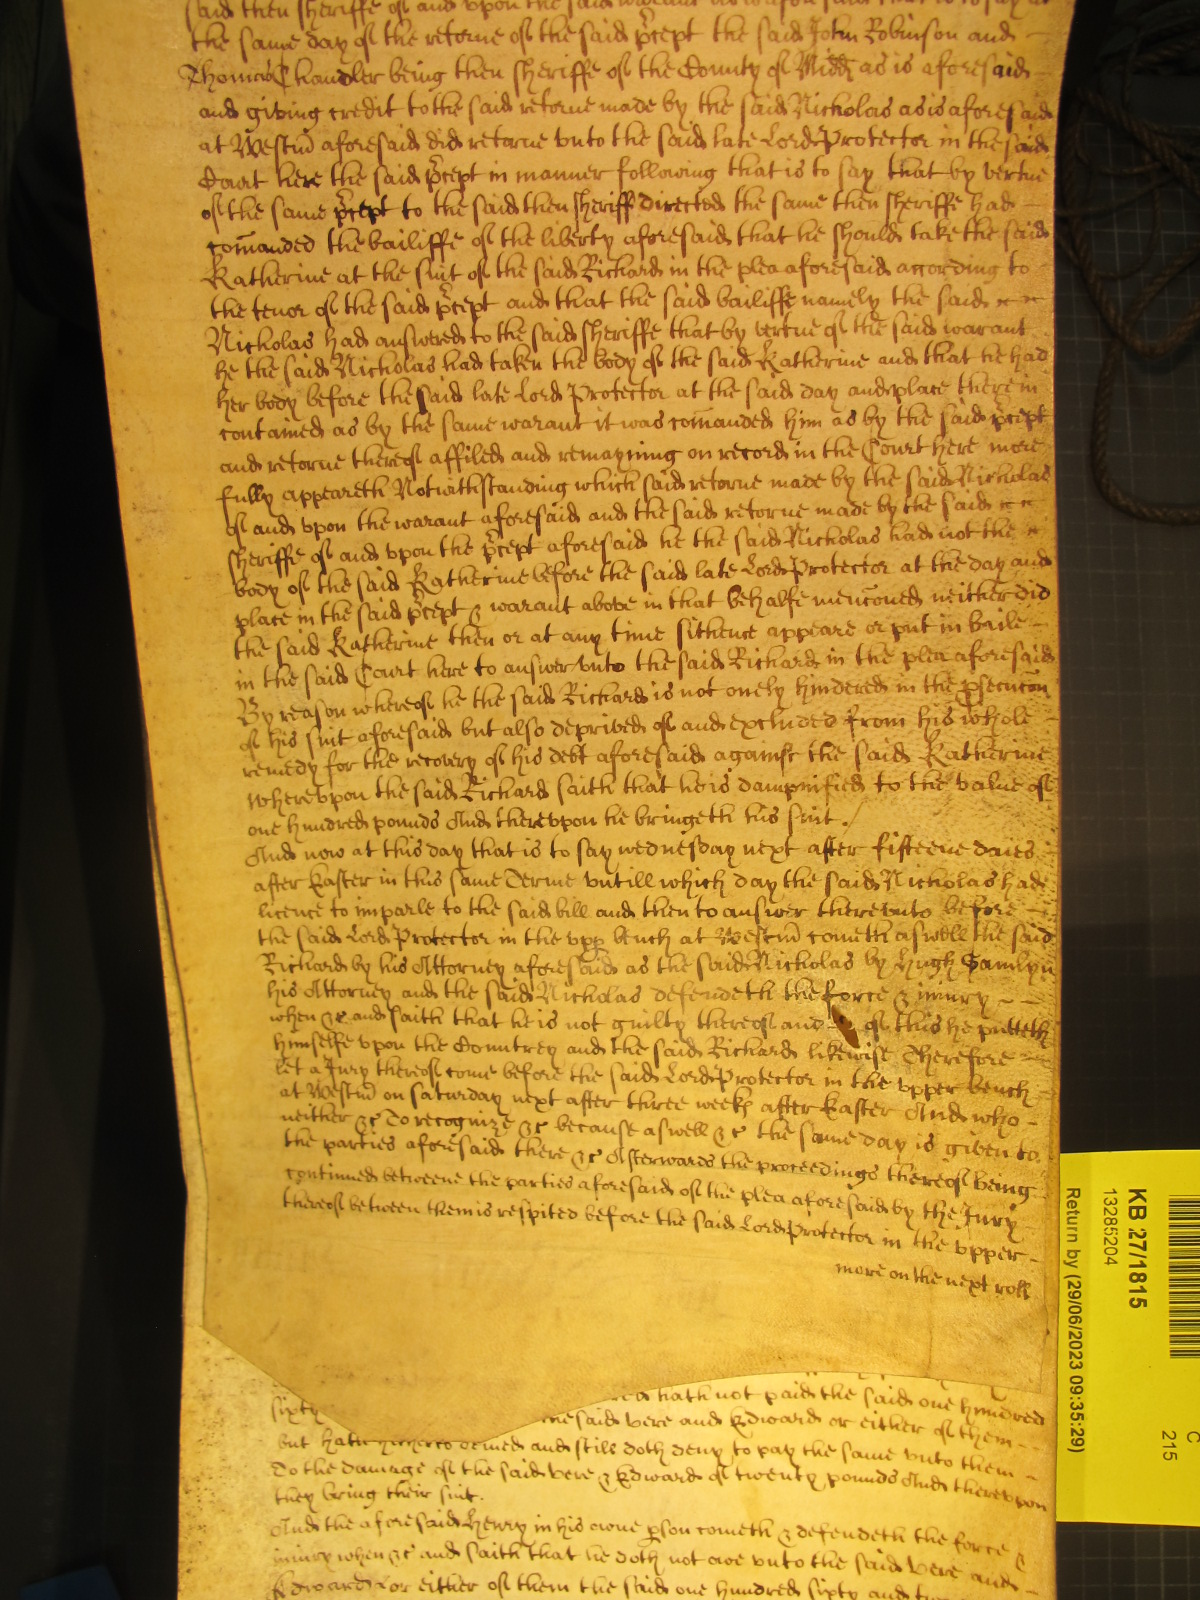 said then sheriffe of and vpon the said warant
the same day of the retorne of the said p̃cept the said John Robinson and
Thomas Chandler being then sheriffe of the County of Midd̃ as is aforesaid
and giving credit to the said retorne made by the said Nicholas as is aforesaid
at Westm̃ aforesaid did retorne vnto the said late Lord Protector in the said
Court here the said p̃cept in manner following that is to say that by vertue
of the same p̃cept to the said then sheriff directed the same then sheriffe had
com̃anded the bailiffe of the liberty aforesaid that he should take the said
Katherine at the suit of the said Richard in the plea aforesaid according to
the tenor of the said p̃cept and that the said bailiffe namely the said
Nicholas had answered to the said sheriffe that by vertue of the said warant
he the said Nicholas had taken the body of the said Katherine and that he had
her body before the said late Lord Protector at the said day and place therein
contained as by the same warant it was com̃anded him as by the said p̃cept
and retorne thereof affiled and remayning on record in the Court here more
fully appeareth Notwithstanding which said retorne made by the said Nicholas
of and vpon the warant aforesaid and the said retorne made by the said
sheriffe of and vpon the p̃cept aforesaid he the said Nicholas had not the
body of the said Katherine before the said late Lord Protector at the day and
place in the said p̃cept & warant above in that behalfe menc̃oned neither did
the said Katherine then or at any time sithence appeare or put in baile
in the said Court here to answer vnto the said Richard in the plea aforesaid
By reason whereof he the said Richard is not onely hindered in the p̃secuc̃on
of his suit aforesaid but also deprived of and excluded from his whole
remedy for the recovery of his debt aforesaid against the said Katherine
Wherevpon the said Richard saith that he is dampnified to the value of
one hundred pounds And therevpon he bringeth his suit ./
And now at this day that is to say wednesday next after fifteene daies
after Easter in this same Terme vntill which day the said Nicholas had
licence to imparle to the said bill and then to answer therevnto before
the said Lord Protector in the vpp bench at Westm̃ cometh aswell the said
Richard by his Attorney aforesaid as the said Nicholas by Hugh Samlyn
his Attorney and the said Nicholas defendeth the force & iniury
when &c and saith that he is not guilty thereof and of this he putteth
himselfe vpon the Countrey and the said Richard likewise Therefore
let a Jury thereof come before the said Lord Protector in the vpper bench
at Westm̃ on saturday next after three weeks after Easter And who
neither &c To recognize &c because aswell &c the same day is given to
the parties aforesaid there &c Afterwards the proceedings thereof being
continued betweene the parties aforesaid of the plea aforesaid by the Jury
thereof between them is respited before the said Lord Protector in the vpper
more on the next roll
hath not paid the said one hundred
sixty the said Vere and Edward or either of them
but hath hitherto denied and still doth deny to pay the same vnto them
To the damage of the said Vere & Edward of twenty pounds And therevpon
they bring their suit.
And the aforesaid Henry in his owne p̃son cometh & defendeth the force &
iniury when &c and saith that he doth not owe vnto the said Vere and
Edward or either of them the said one hundred sixty and
KB 27/1815
13285204
Return by (29/06/2023 09:35:29)
C
215